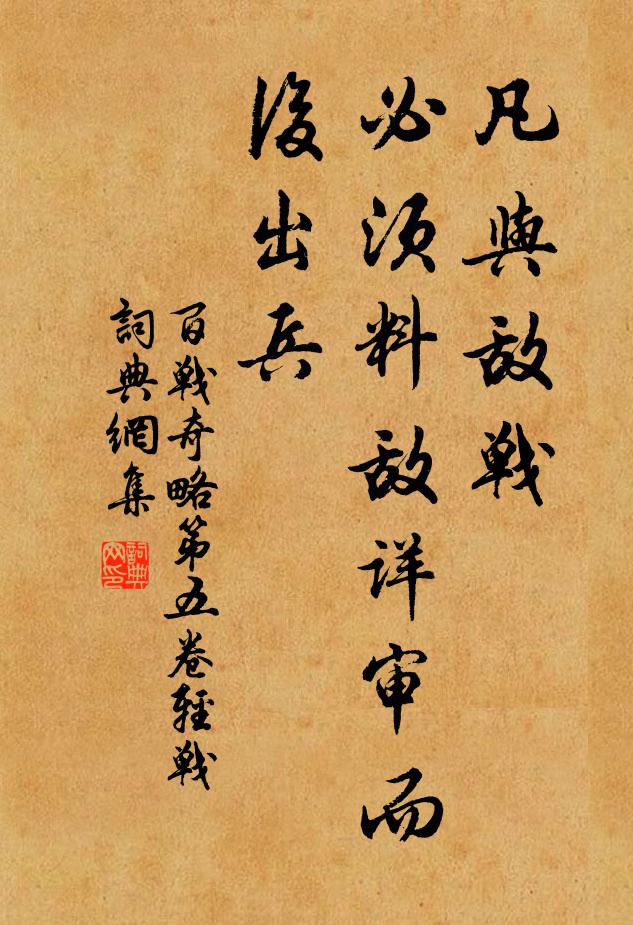 凡與敌戰
必須料敌详审而
後出兵
百戰奇略第五卷輕戰
詞典網集
詞典网印